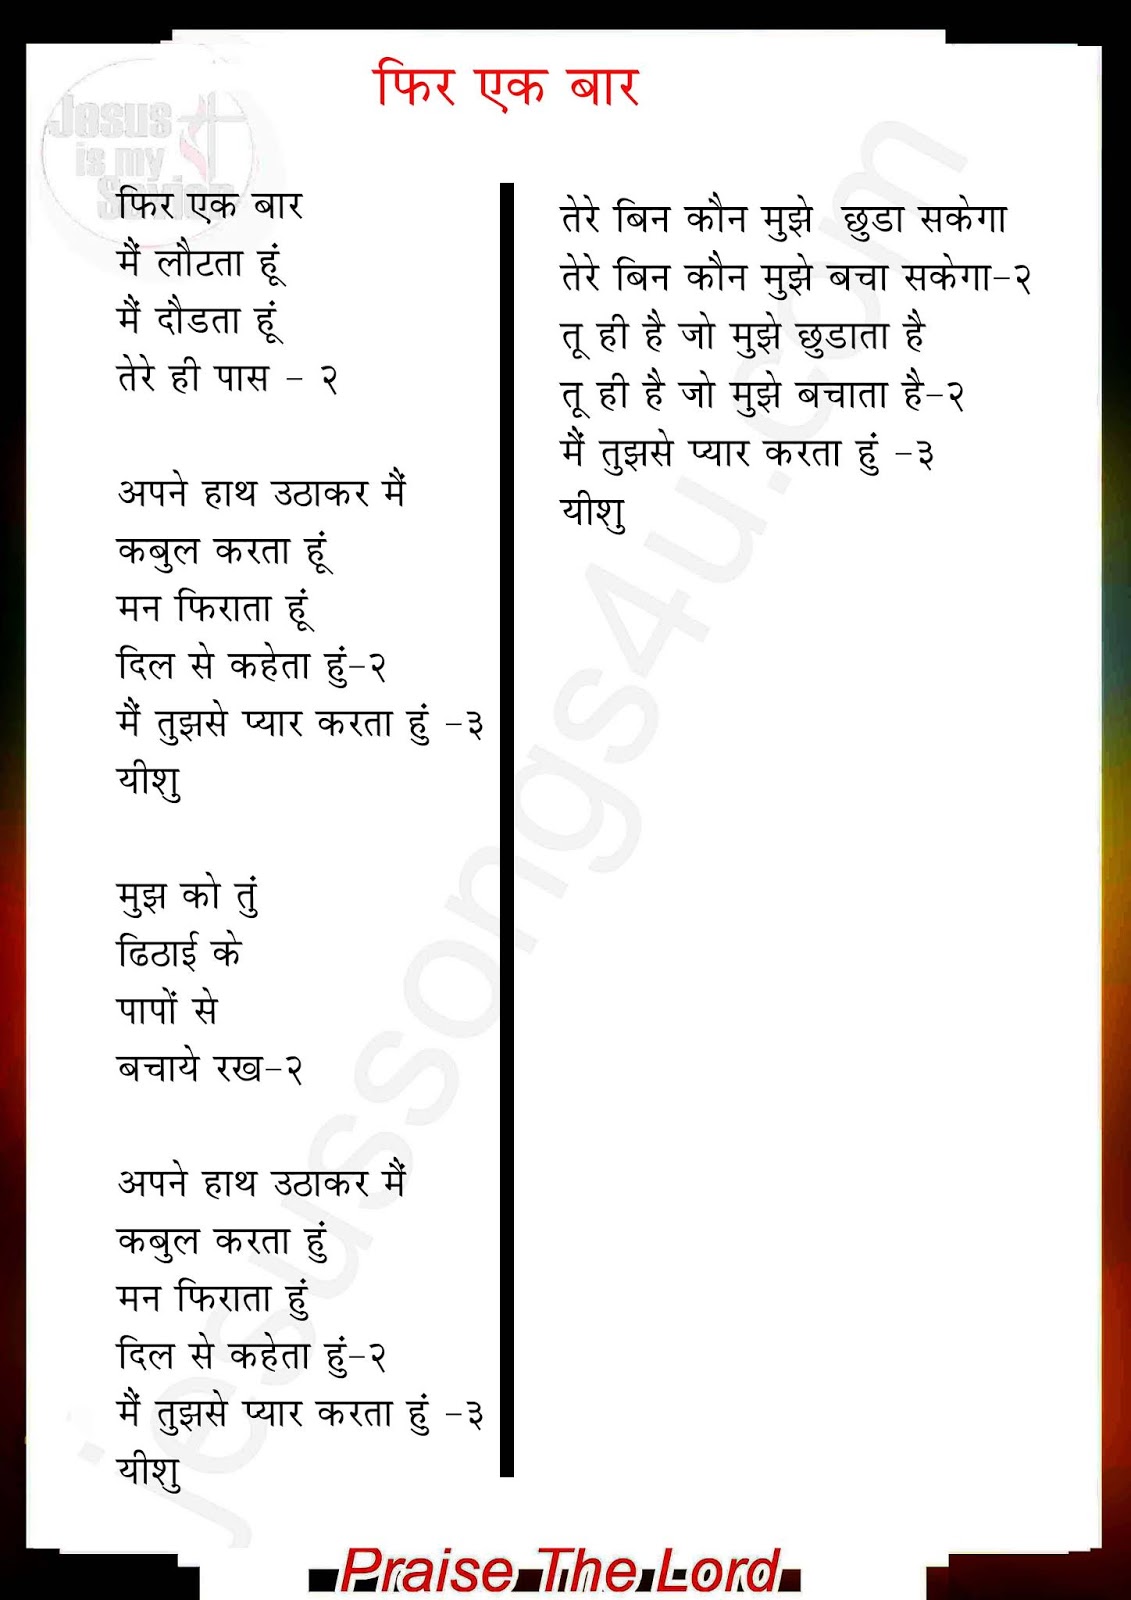 Jesus
is my
Savior
फिर एक बार
फिर एक बार
मैं लौटता हूं
मैं दौडता हूं
तेरे ही पास - २
अपने हाथ उठाकर मैं
कबुल करता हूं
मन फिराता हूं
दिल से कहेता हुं-२
मैं तुझसे प्यार करता हुं -३
यीशु
मुझ को तुं
ढिठाई के
पापों से
बचाये रख-२
अपने हाथ उठाकर मैं
कबुल करता हुं
मन फिराता हुं
दिल से कहेता हुं-२
मैं तुझसे प्यार करता हुं -३
यीशु
तेरे बिन कौन मुझे छुडा सकेगा
तेरे बिन कौन मुझे बचा सकेगा-२
तू ही है जो मुझे छुडाता है
तू ही है जो मुझे बचाता है-२
मैं तुझसे प्यार करता हुं -३
यीशु
jesussongs4u.com
Praise The Lord